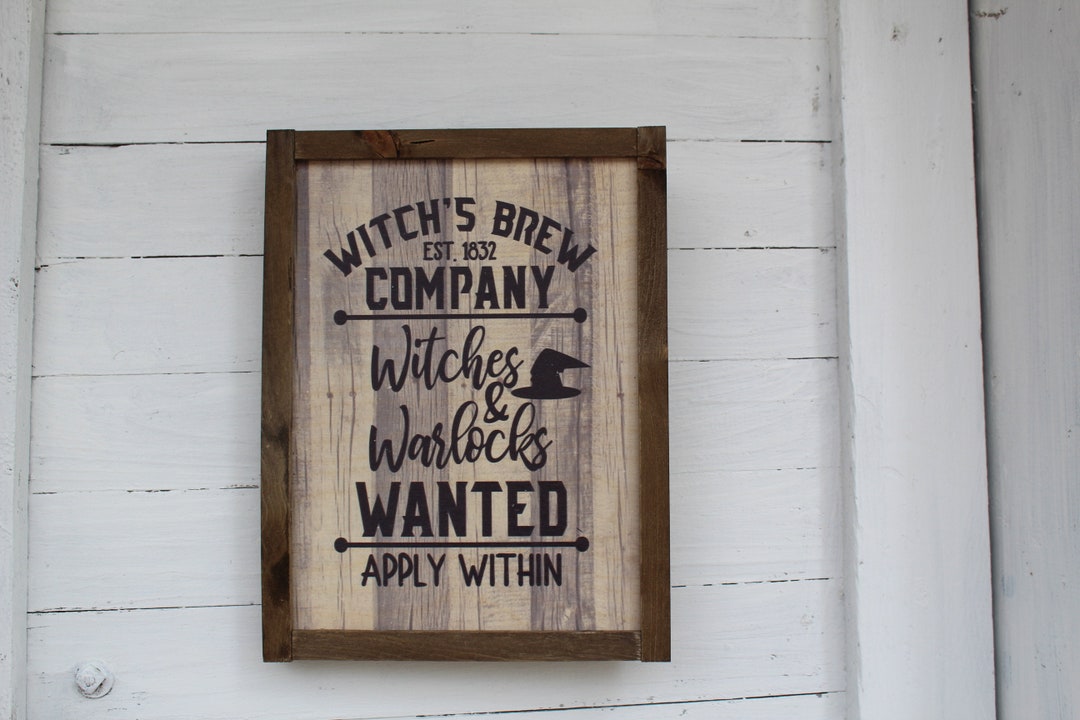 WITCH'S BREW
EST. 1832
COMPANY
Witches
&
Warlocks
WANTED
APPLY WITHIN